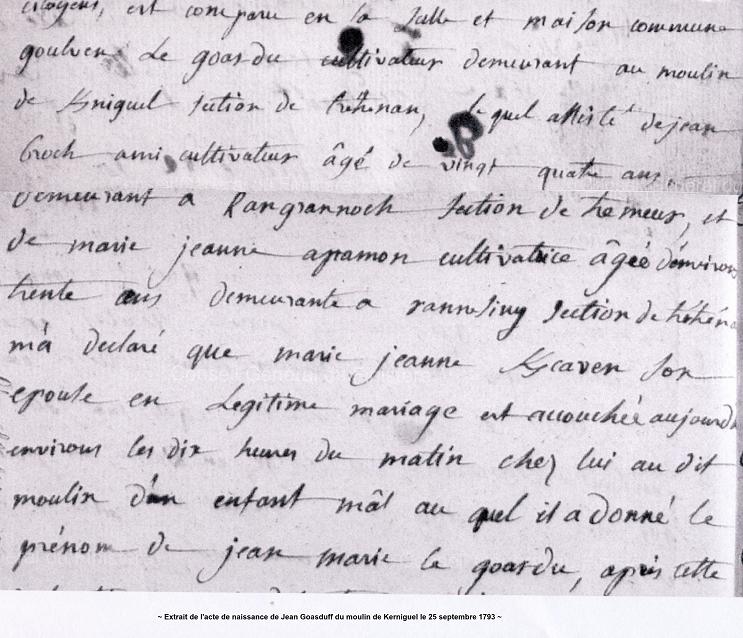 citoyens, est comparu en la salle et maison commune
goulven Le goasdu cultivateur demeurant au moulin
de Kniguel section de tréhénan, lequel assisté de jean
Croch ami cultivateur âgé de vingt quatre ans
demeurant a section de tremeur, et
de marie jeanne apamon cultivatrice âgée d'environ
trente ans demeurante a section de
m'a declaré que marie jeanne son
epouse en Legitime mariage est accouchée aujourd
environs les dix heures du matin chez lui au dit
moulin d'un enfant mâl au quel il a donné le
prénom de jean marie le goasdu, après cette
~ Extrait de l'acte de naissance de Jean Goasduff du moulin de Kerniguel le 25 septembre 1793 ~